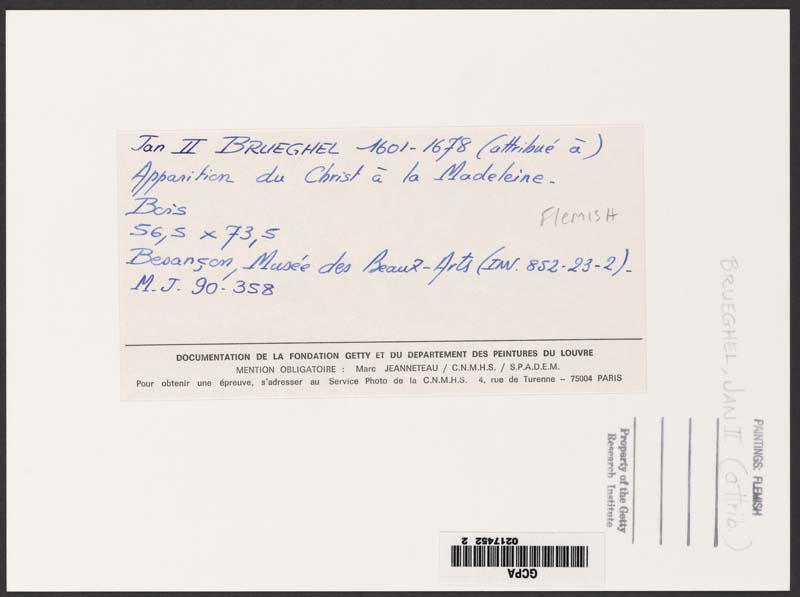 Jan II BRUEGHEL 1601-1678 (attribué à)
Apparition du Christ à la Madeleine.
Bois
56,5 x 73,5
Besançon, Musée des Beaux-Arts (INV. 852-23-2).
M.J. 90-358
FLEMISH
DOCUMENTATION DE LA FONDATION GETTY ET DU DEPARTEMENT DES PEINTURES DU LOUVRE
MENTION OBLIGATOIRE : Marc JEANNETEAU / C.N.M.H.S. / S.P.A.D.E.M.
Pour obtenir une épreuve, s'adresser au Service Photo de la C.N.M.H.S. 4, rue de Turenne – 75004 PARIS
BRUEGHEL, JAN II (attrib.)
PAINTINGS: FLEMISH
Property of the Getty
Research Institute
GCPA
0217452 2